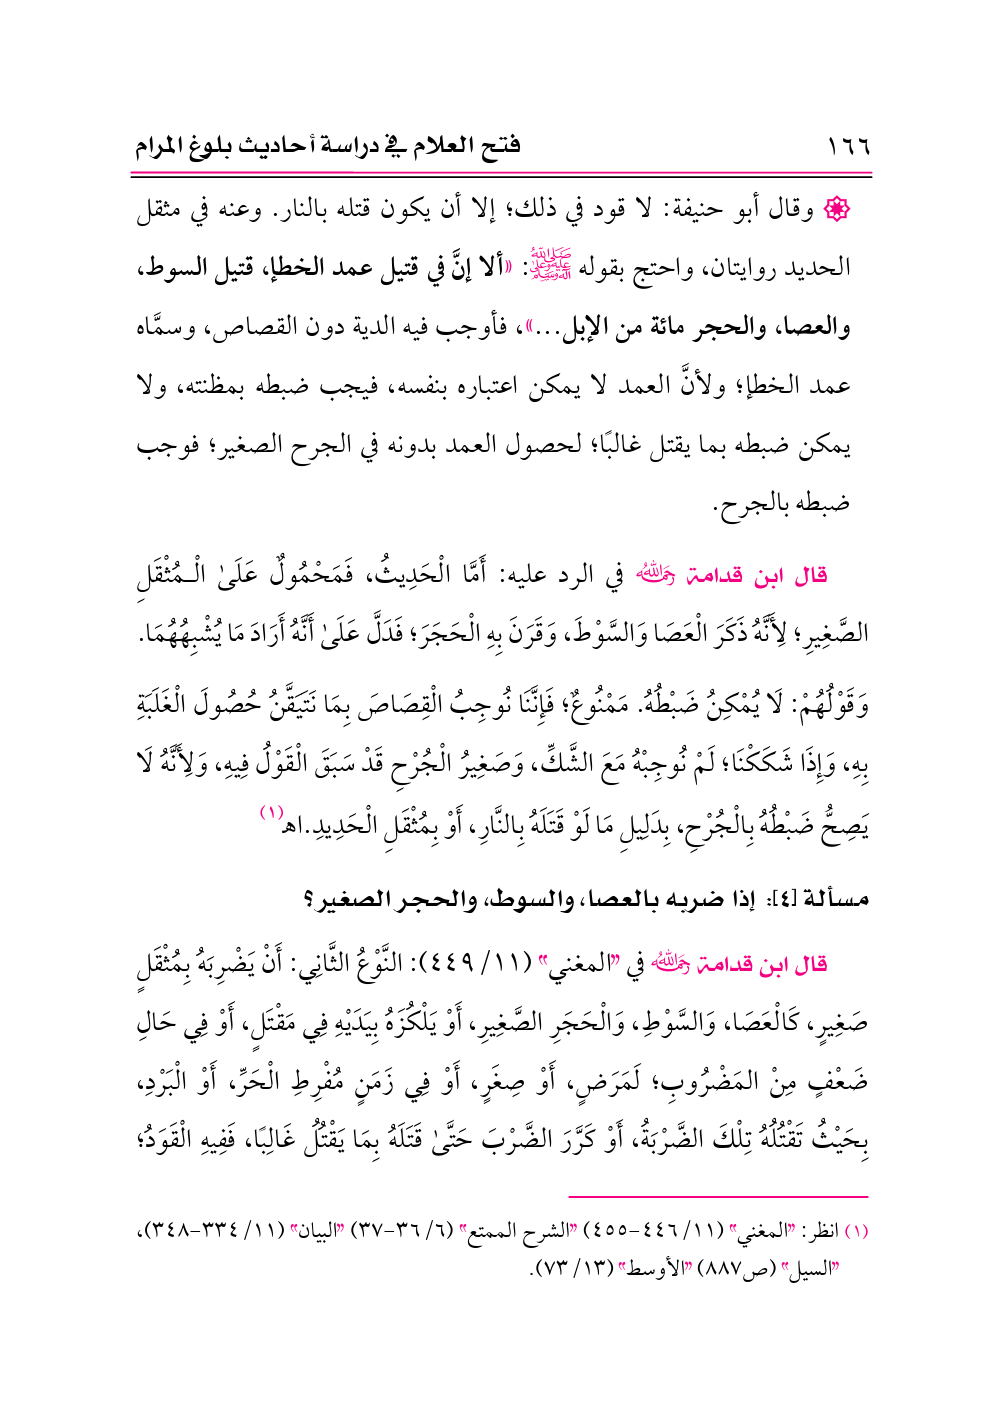 ١٦٦ فتح العلام في دراسة أحاديث بلوغ المرام
وقال أبو حنيفة: لا قود في ذلك؛ إلا أن يكون قتله بالنار. وعنه في مثقل
الحديد روايتان، واحتج بقوله ﷺ: «ألا إنَّ في قتيل عمد الخطإ، قتيل السوط،
والعصا، والحجر مائة من الإبل...»، فأوجب فيه الدية دون القصاص، وسمَّاه
عمد الخطإ؛ ولأنَّ العمد لا يمكن اعتباره بنفسه، فيجب ضبطه بمظنته، ولا
يمكن ضبطه بما يقتل غالبًا؛ لحصول العمد بدونه في الجرح الصغير؛ فوجب
ضبطه بالجرح.
قال ابن قدامة رحمه الله في الرد عليه: أَمَّا الْحَدِيثُ، فَمَحْمُولٌ عَلَىٰ الْـمُثْقَلِ
الصَّغِيرِ؛ لِأَنَّهُ ذَكَرَ الْعَصَا وَالسَّوْطَ، وَقَرَنَ بِهِ الْحَجَرَ؛ فَدَلَّ عَلَىٰ أَنَّهُ أَرَادَ مَا يُشْبِهُهُمَا.
وَقَوْلُهُمْ: لَا يُمْكِنُ ضَبْطُهُ. مَمْنُوعٌ؛ فَإِنَّنَا نُوجِبُ الْقِصَاصَ بِمَا نَتَيَقَّنُ حُصُولَ الْغَلَبَةِ
بِهِ، وَإِذَا شَكَكْنَا؛ لَمْ نُوجِبْهُ مَعَ الشَّكِّ، وَصَغِيرُ الْجُرْحِ قَدْ سَبَقَ الْقَوْلُ فِيهِ، وَلِأَنَّهُ لَا
يَصِحُّ ضَبْطُهُ بِالْجُرْحِ، بِدَلِيلِ مَا لَوْ قَتَلَهُ بِالنَّارِ، أَوْ بِمُثْقَلِ الْحَدِيدِ.اهـ(١)
مسألة [٤]: إذا ضربه بالعصا، والسوط، والحجر الصغير؟
قال ابن قدامة رحمه الله في "المغني" (١١/ ٤٤٩): النَّوْعُ الثَّانِي: أَنْ يَضْرِبَهُ بِمُثْقَلٍ
صَغِيرٍ، كَالْعَصَا، وَالسَّوْطِ، وَالْحَجَرِ الصَّغِيرِ، أَوْ يَلْكُزَهُ بِيَدَيْهِ فِي مَقْتَلٍ، أَوْ فِي حَالِ
ضَعْفٍ مِنْ المَضْرُوبِ؛ لَمَرَضٍ، أَوْ صِغَرٍ، أَوْ فِي زَمَنٍ مُفْرِطِ الْحَرِّ، أَوْ الْبَرْدِ،
بِحَيْثُ تَقْتُلُهُ تِلْكَ الضَّرْبَةُ، أَوْ كَرَّرَ الضَّرْبَ حَتَّىٰ قَتَلَهُ بِمَا يَقْتُلُ غَالِبًا، فَفِيهِ الْقَوَدُ؛
(١) انظر: "المغني" (١١/ ٤٤٦-٤٥٥) "الشرح الممتع" (٦/ ٣٦-٣٧) "البيان" (١١/ ٣٣٤-٣٤٨)،
"السيل" (ص٨٨٧) "الأوسط" (١٣/ ٧٣).